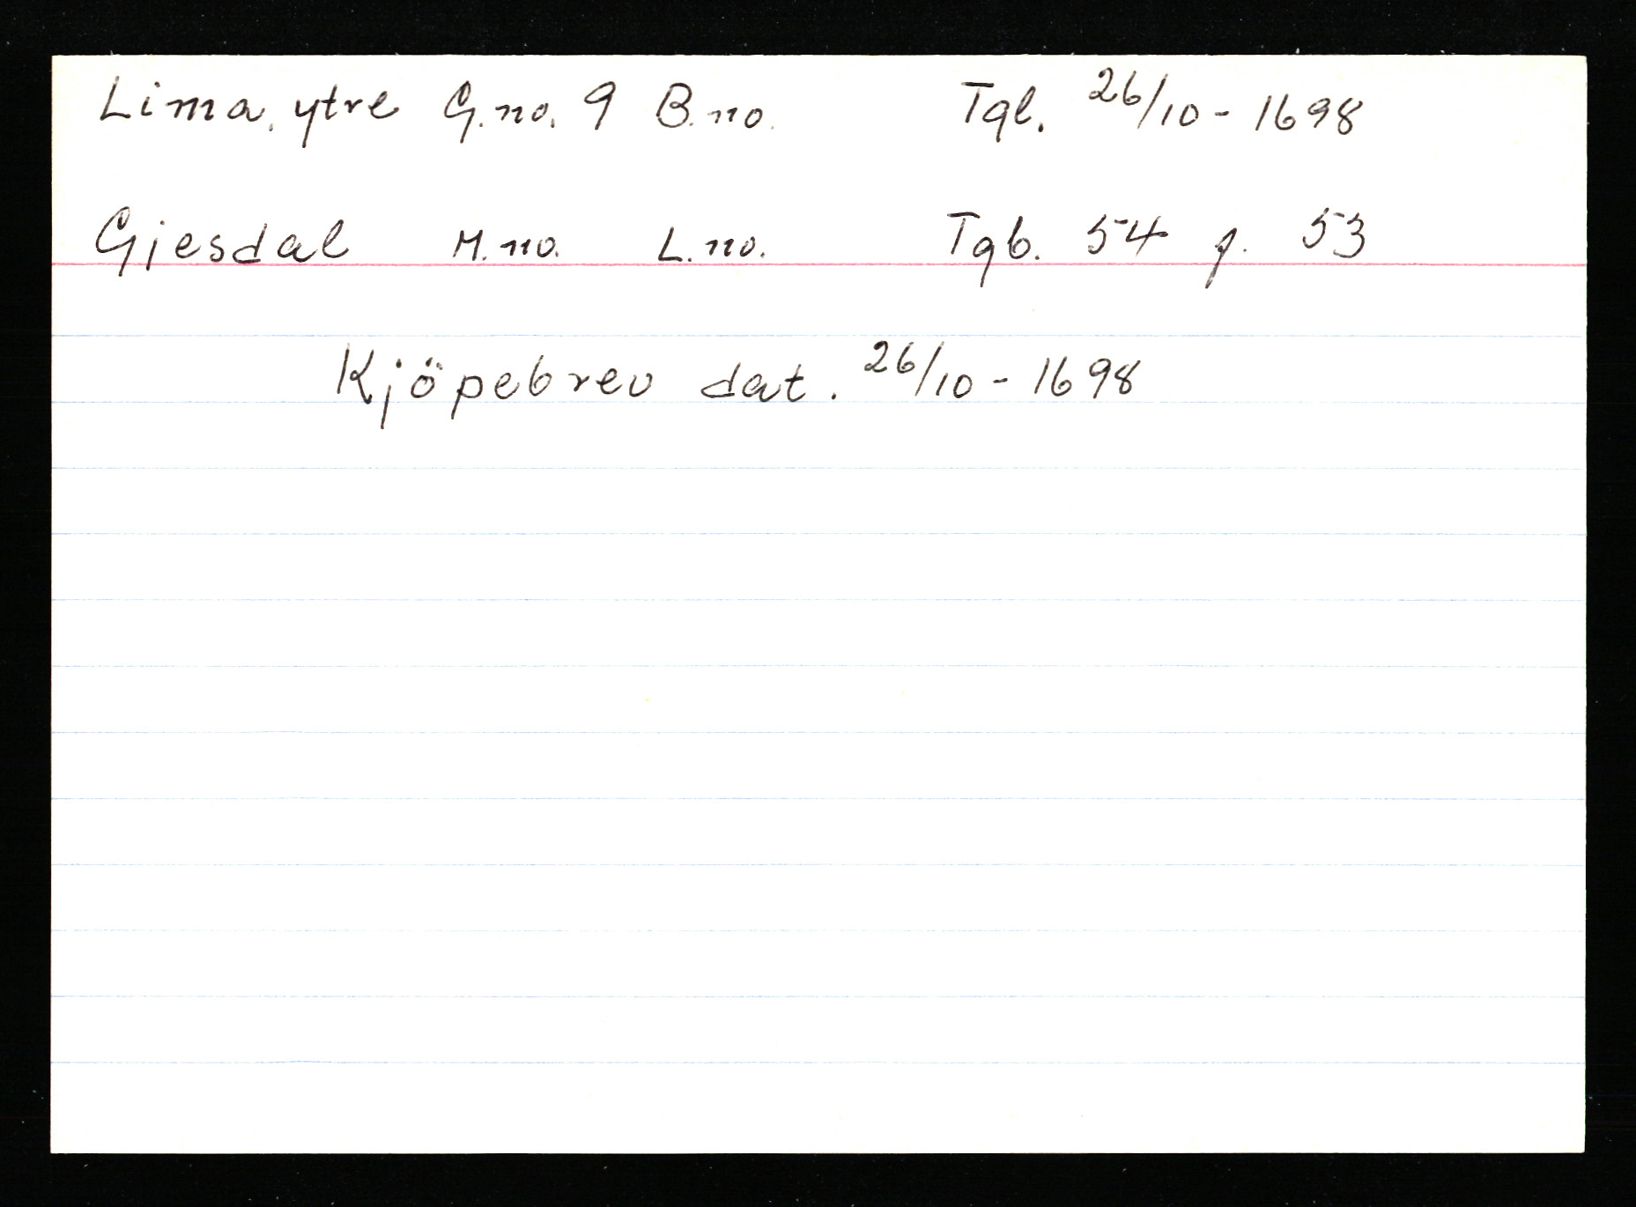 Lima, ytre G.no. 9 B.no. Tgl. 26/10 - 1698
Gjesdal M.no. L.no. Tgb. 54 p. 53
Kjöpebrev dat. 26/10 - 1698